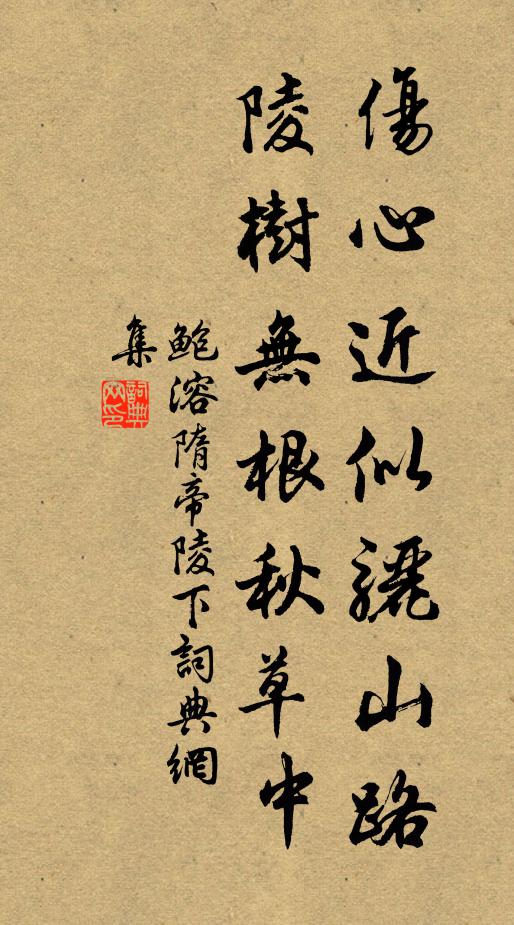 傷心近似驪山路
陵樹無根秋草中
鮑溶隋帝陵下詞典網
集
詞典
网印